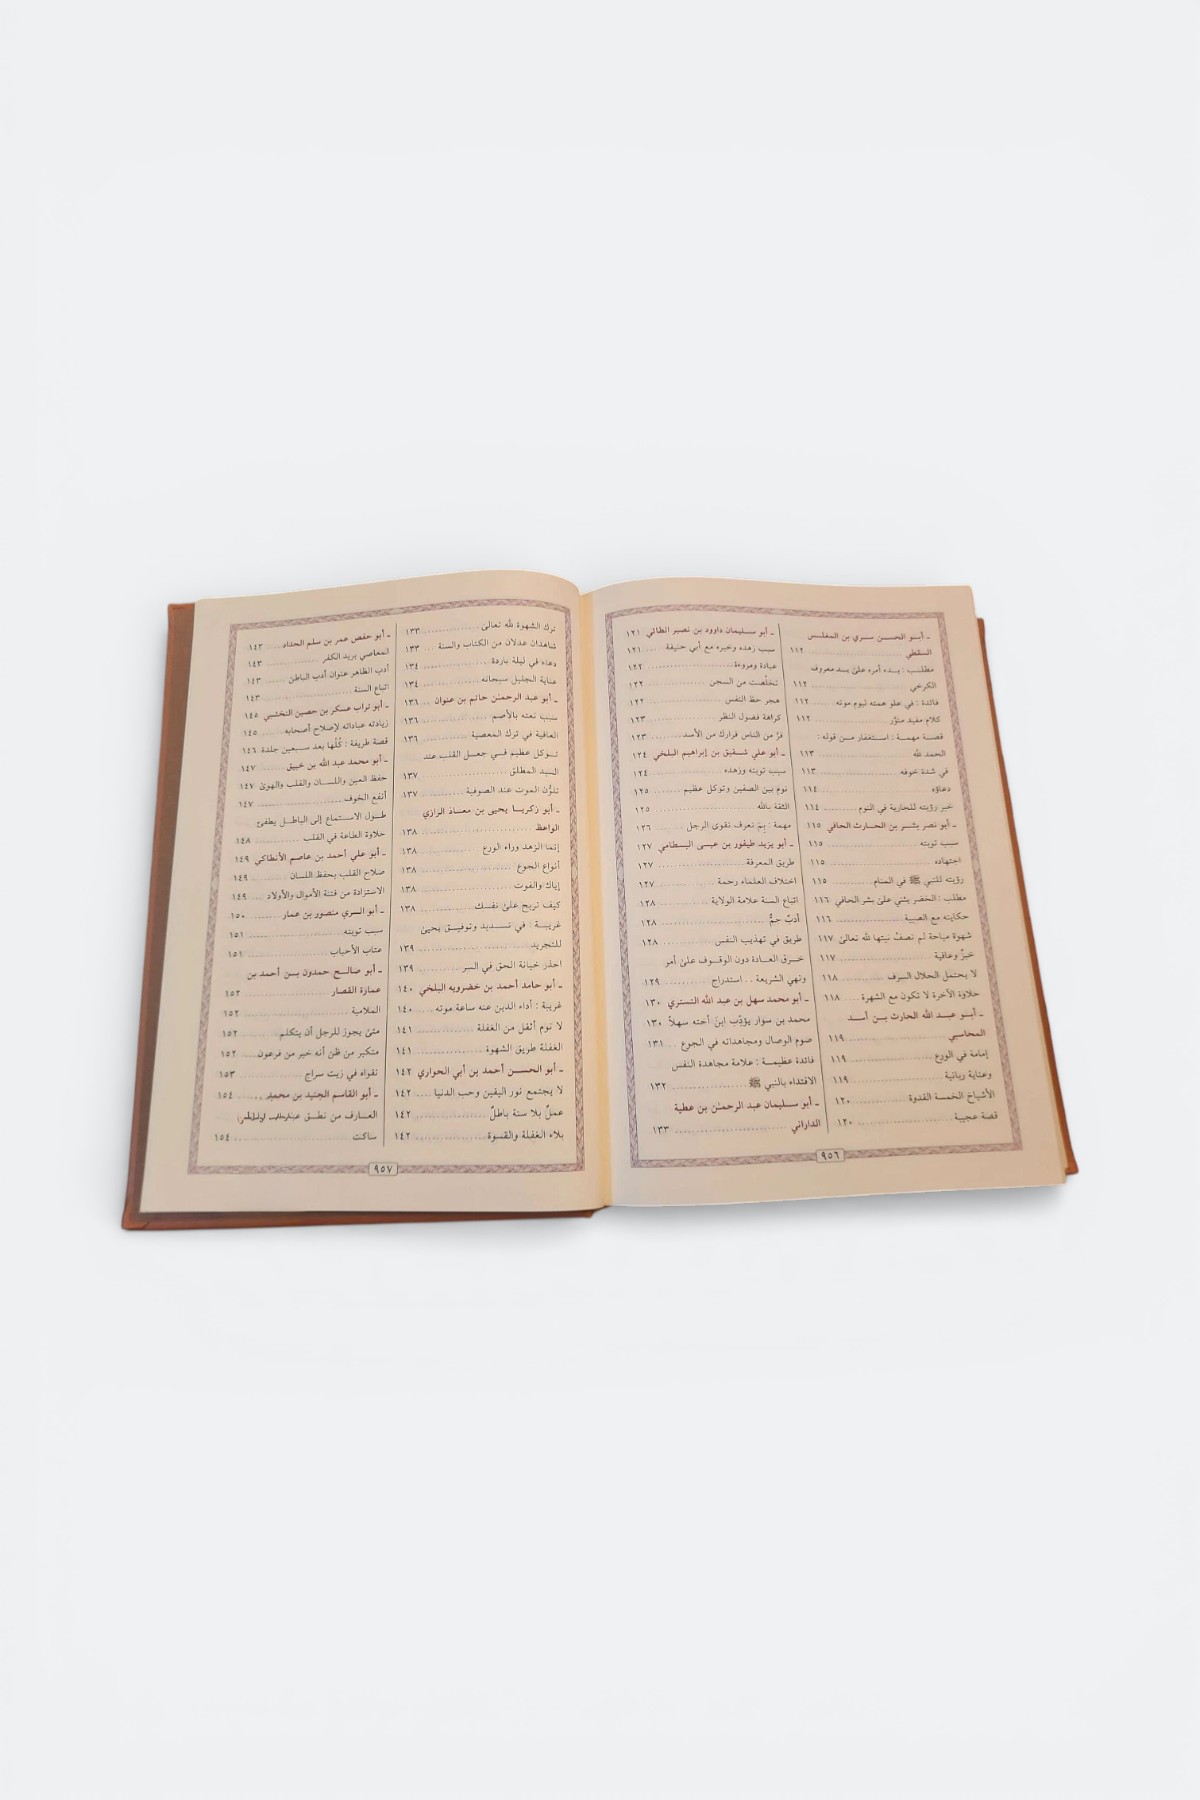 ـ أبو الحسن سري بن المغلس
السقطي ........ ١١٢
مطلب : بدء أمره على يد معروف
الكرخي ........ ١١٢
فائدة : في علو همته ليوم موته ... ١١٢
كلام مفيد منوّر ........ ١١٢
قصة مهمة : استغفار من قوله :
الحمد لله ........ ١١٣
في شدة خوفه ........ ١١٣
دعاؤه ........ ١١٤
خبر رؤيته للجارية في النوم ........ ١١٤
ـ أبو نصر بشر بن الحارث الحافي ١١٥
سبب توبته ........ ١١٥
اجتهاده ........ ١١٥
رؤيته للنبي ﷺ في المنام ........ ١١٥
مطلب : الخضر يثني على بشر الحافي ١١٦
حكايته مع الصبية ........ ١١٦
شهوة مباحة لم تصفُ نيتها لله تعالى ١١٧
خبزٌ وعافية ........ ١١٧
لا يحتمل الحلال السرف ........ ١١٨
حلاوة الآخرة لا تكون مع الشهرة ... ١١٨
ـ أبو عبد الله الحارث بن أسد
المحاسبي ........ ١١٩
إمامة في الورع ........ ١١٩
وعناية ربانية ........ ١١٩
الأشياخ الخمسة القدوة ........ ١٢٠
قصة عجيبة ........ ١٢٠
ـ أبو سليمان داوود بن نصير الطائي ١٢١
سبب زهده وخبره مع أبي حنيفة ... ١٢١
عبادة ومروءة ........ ١٢٢
تخلّصت من السجن ........ ١٢٢
هجر حظ النفس ........ ١٢٢
كراهة فضول النظر ........ ١٢٣
فرَّ من الناس فرارك من الأسد ........ ١٢٣
ـ أبو علي شقيق بن إبراهيم البلخي ١٢٤
سبب توبته وزهده ........ ١٢٤
نوم بين الصفين وتوكل عظيم ........ ١٢٥
الثقة بالله ........ ١٢٥
مهمة : بِمَ تعرف تقوى الرجل ........ ١٢٦
ـ أبو يزيد طيفور بن عيسى البسطامي ١٢٧
طريق المعرفة ........ ١٢٧
اختلاف العلماء رحمة ........ ١٢٧
اتباع السنة علامة الولاية ........ ١٢٨
أدبٌ جمٌّ ........ ١٢٨
طريق في تهذيب النفس ........ ١٢٨
خرق العادة دون الوقوف على أمر
ونهي الشريعة .. استدراج ........ ١٢٩
ـ أبو محمد سهل بن عبد الله التستري ١٣٠
محمد بن سوار يؤدِّب ابنَ أخته سهلاً ١٣٠
صوم الوصال ومجاهداته في الجوع .. ١٣١
فائدة عظيمة : علامة مجاهدة النفس
الاقتداء بالنبي ﷺ ........ ١٣٢
ـ أبو سليمان عبد الرحمٰن بن عطية
الداراني ........ ١٣٣
٩٥٦
ترك الشهوة لله تعالى ........ ١٣٣
شاهدان عدلان من الكتاب والسنة ... ١٣٣
دعاء في ليلة باردة ........ ١٣٤
عناية الجليل سبحانه ........ ١٣٤
ـ أبو عبد الرحمٰن حاتم بن عنوان .. ١٣٦
سبب نعته بالأصم ........ ١٣٦
العافية في ترك المعصية ........ ١٣٦
توكل عظيم في جعل القلب عند
السيد المطلق ........ ١٣٧
تلوُّن الموت عند الصوفية ........ ١٣٧
ـ أبو زكريا يحيى بن معاذ الرازي
الواعظ ........ ١٣٨
إنما الزهد وراء الورع ........ ١٣٨
أنواع الجوع ........ ١٣٨
إياك والفوت ........ ١٣٨
كيف تربح على نفسك ........ ١٣٨
غريبة : في تسديد وتوفيق يحيى
للتجريد ........ ١٣٩
احذر خيانة الحق في السر ........ ١٣٩
ـ أبو حامد أحمد بن خضرويه البلخي ١٤٠
غريبة : أداء الدين عنه ساعة موته ... ١٤٠
لا نوم أثقل من الغفلة ........ ١٤١
الغفلة طريق الشهوة ........ ١٤١
ـ أبو الحسن أحمد بن أبي الحواري ١٤٢
لا يجتمع نور اليقين وحب الدنيا .... ١٤٢
عملٌ بلا سنة باطلٌ ........ ١٤٢
بلاء الغفلة والقسوة ........ ١٤٢
ـ أبو حفص عمر بن سلم الحداد ... ١٤٣
المعاصي بريد الكفر ........ ١٤٣
أدب الظاهر عنوان أدب الباطن ........ ١٤٣
اتباع السنة ........ ١٤٣
ـ أبو تراب عسكر بن حصين النخشبي ١٤٥
زيادته عباداته لإصلاح أصحابه ........ ١٤٥
قصة طريفة : كُلْها بعد سبعين جلدة ١٤٦
ـ أبو محمد عبد الله بن خبيق ........ ١٤٧
حفظ العين واللسان والقلب والهوى ١٤٧
أنفع الخوف ........ ١٤٧
طول الاستماع إلى الباطل يطفئ
حلاوة الطاعة في القلب ........ ١٤٨
ـ أبو علي أحمد بن عاصم الأنطاكي ١٤٩
صلاح القلب بحفظ اللسان ........ ١٤٩
الاستزادة من فتنة الأموال والأولاد .. ١٤٩
ـ أبو السري منصور بن عمار ........ ١٥٠
سبب توبته ........ ١٥١
عتاب الأحباب ........ ١٥١
ـ أبو صالح حمدون بن أحمد بن
عمارة القصار ........ ١٥٢
الملامية ........ ١٥٢
متى يجوز للرجل أن يتكلم ........ ١٥٢
متكبر من ظن أنه خير من فرعون .... ١٥٢
تقواه في زيت سراج ........ ١٥٣
ـ أبو القاسم الجنيد بن محمد ..... ١٥٤
العارف من نطق عن
ساكت ........ ١٥٤
٩٥٧